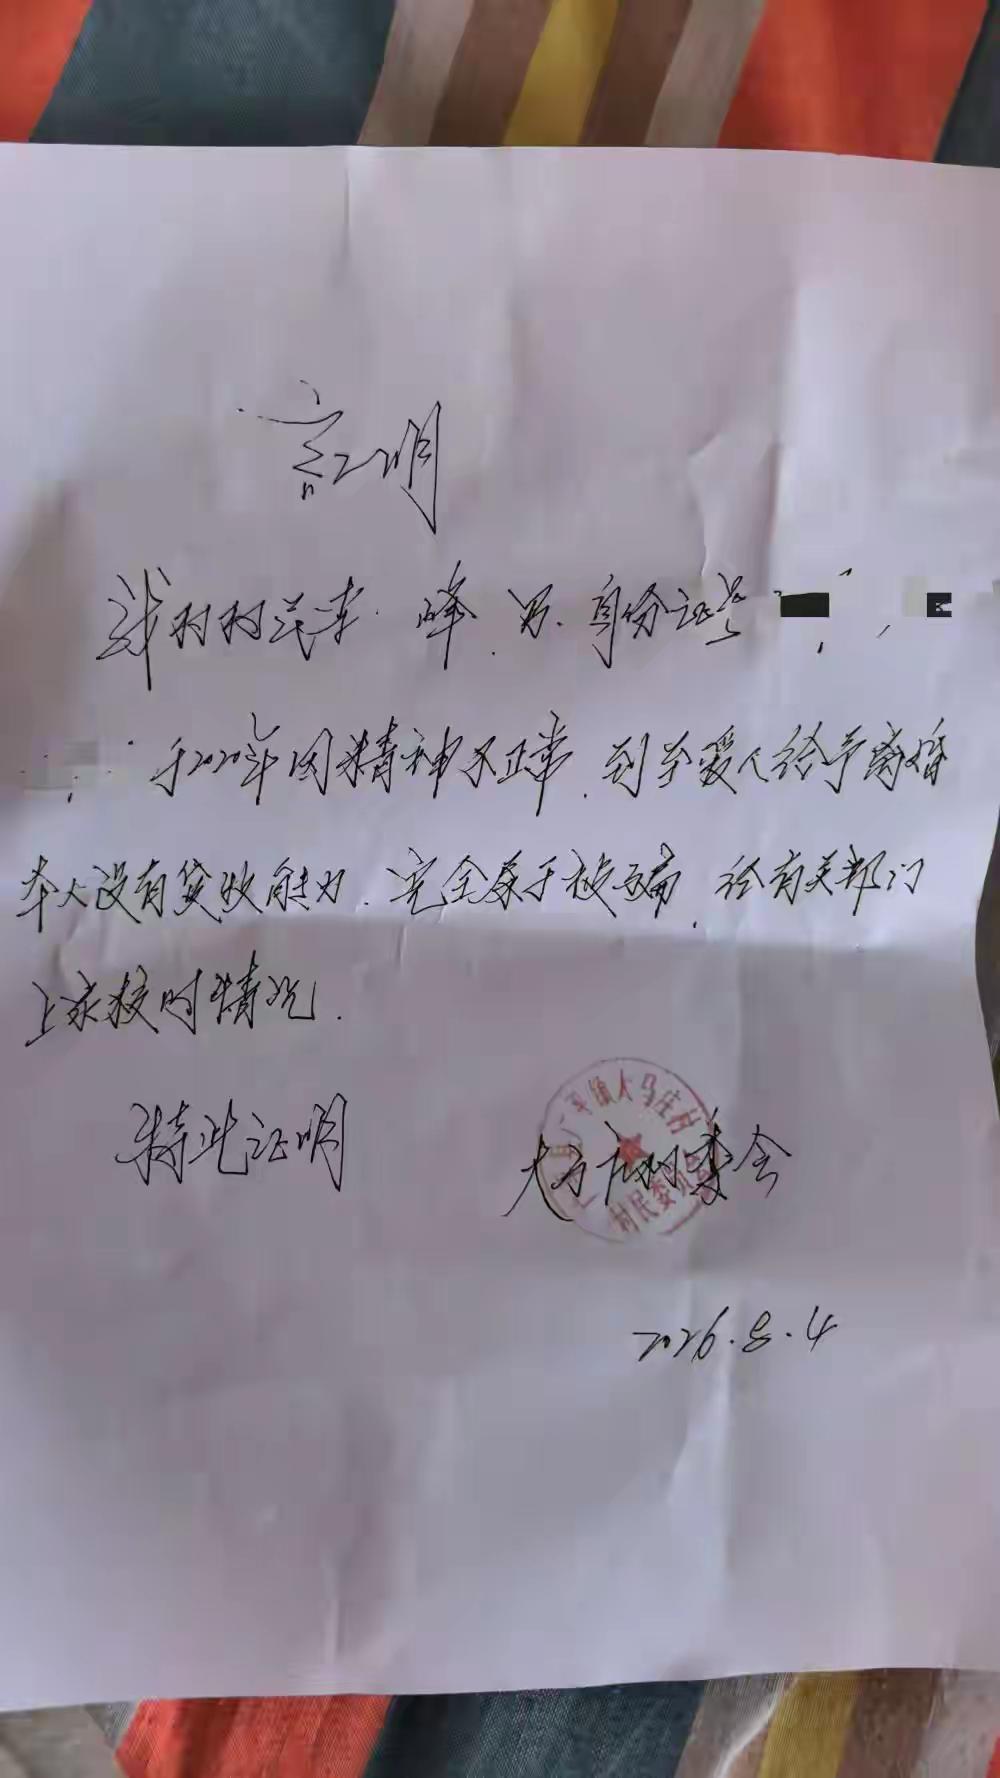 证明
我村村民李 峰.男.身份证号
于2020年因精神不正常.到至爱人给予离婚
本人没有贷收能力.完全系于被骗.给有关部门
上求按时情况.
特此证明
镇大马庄村
村民委员会
大马庄村委会
2026.8.4